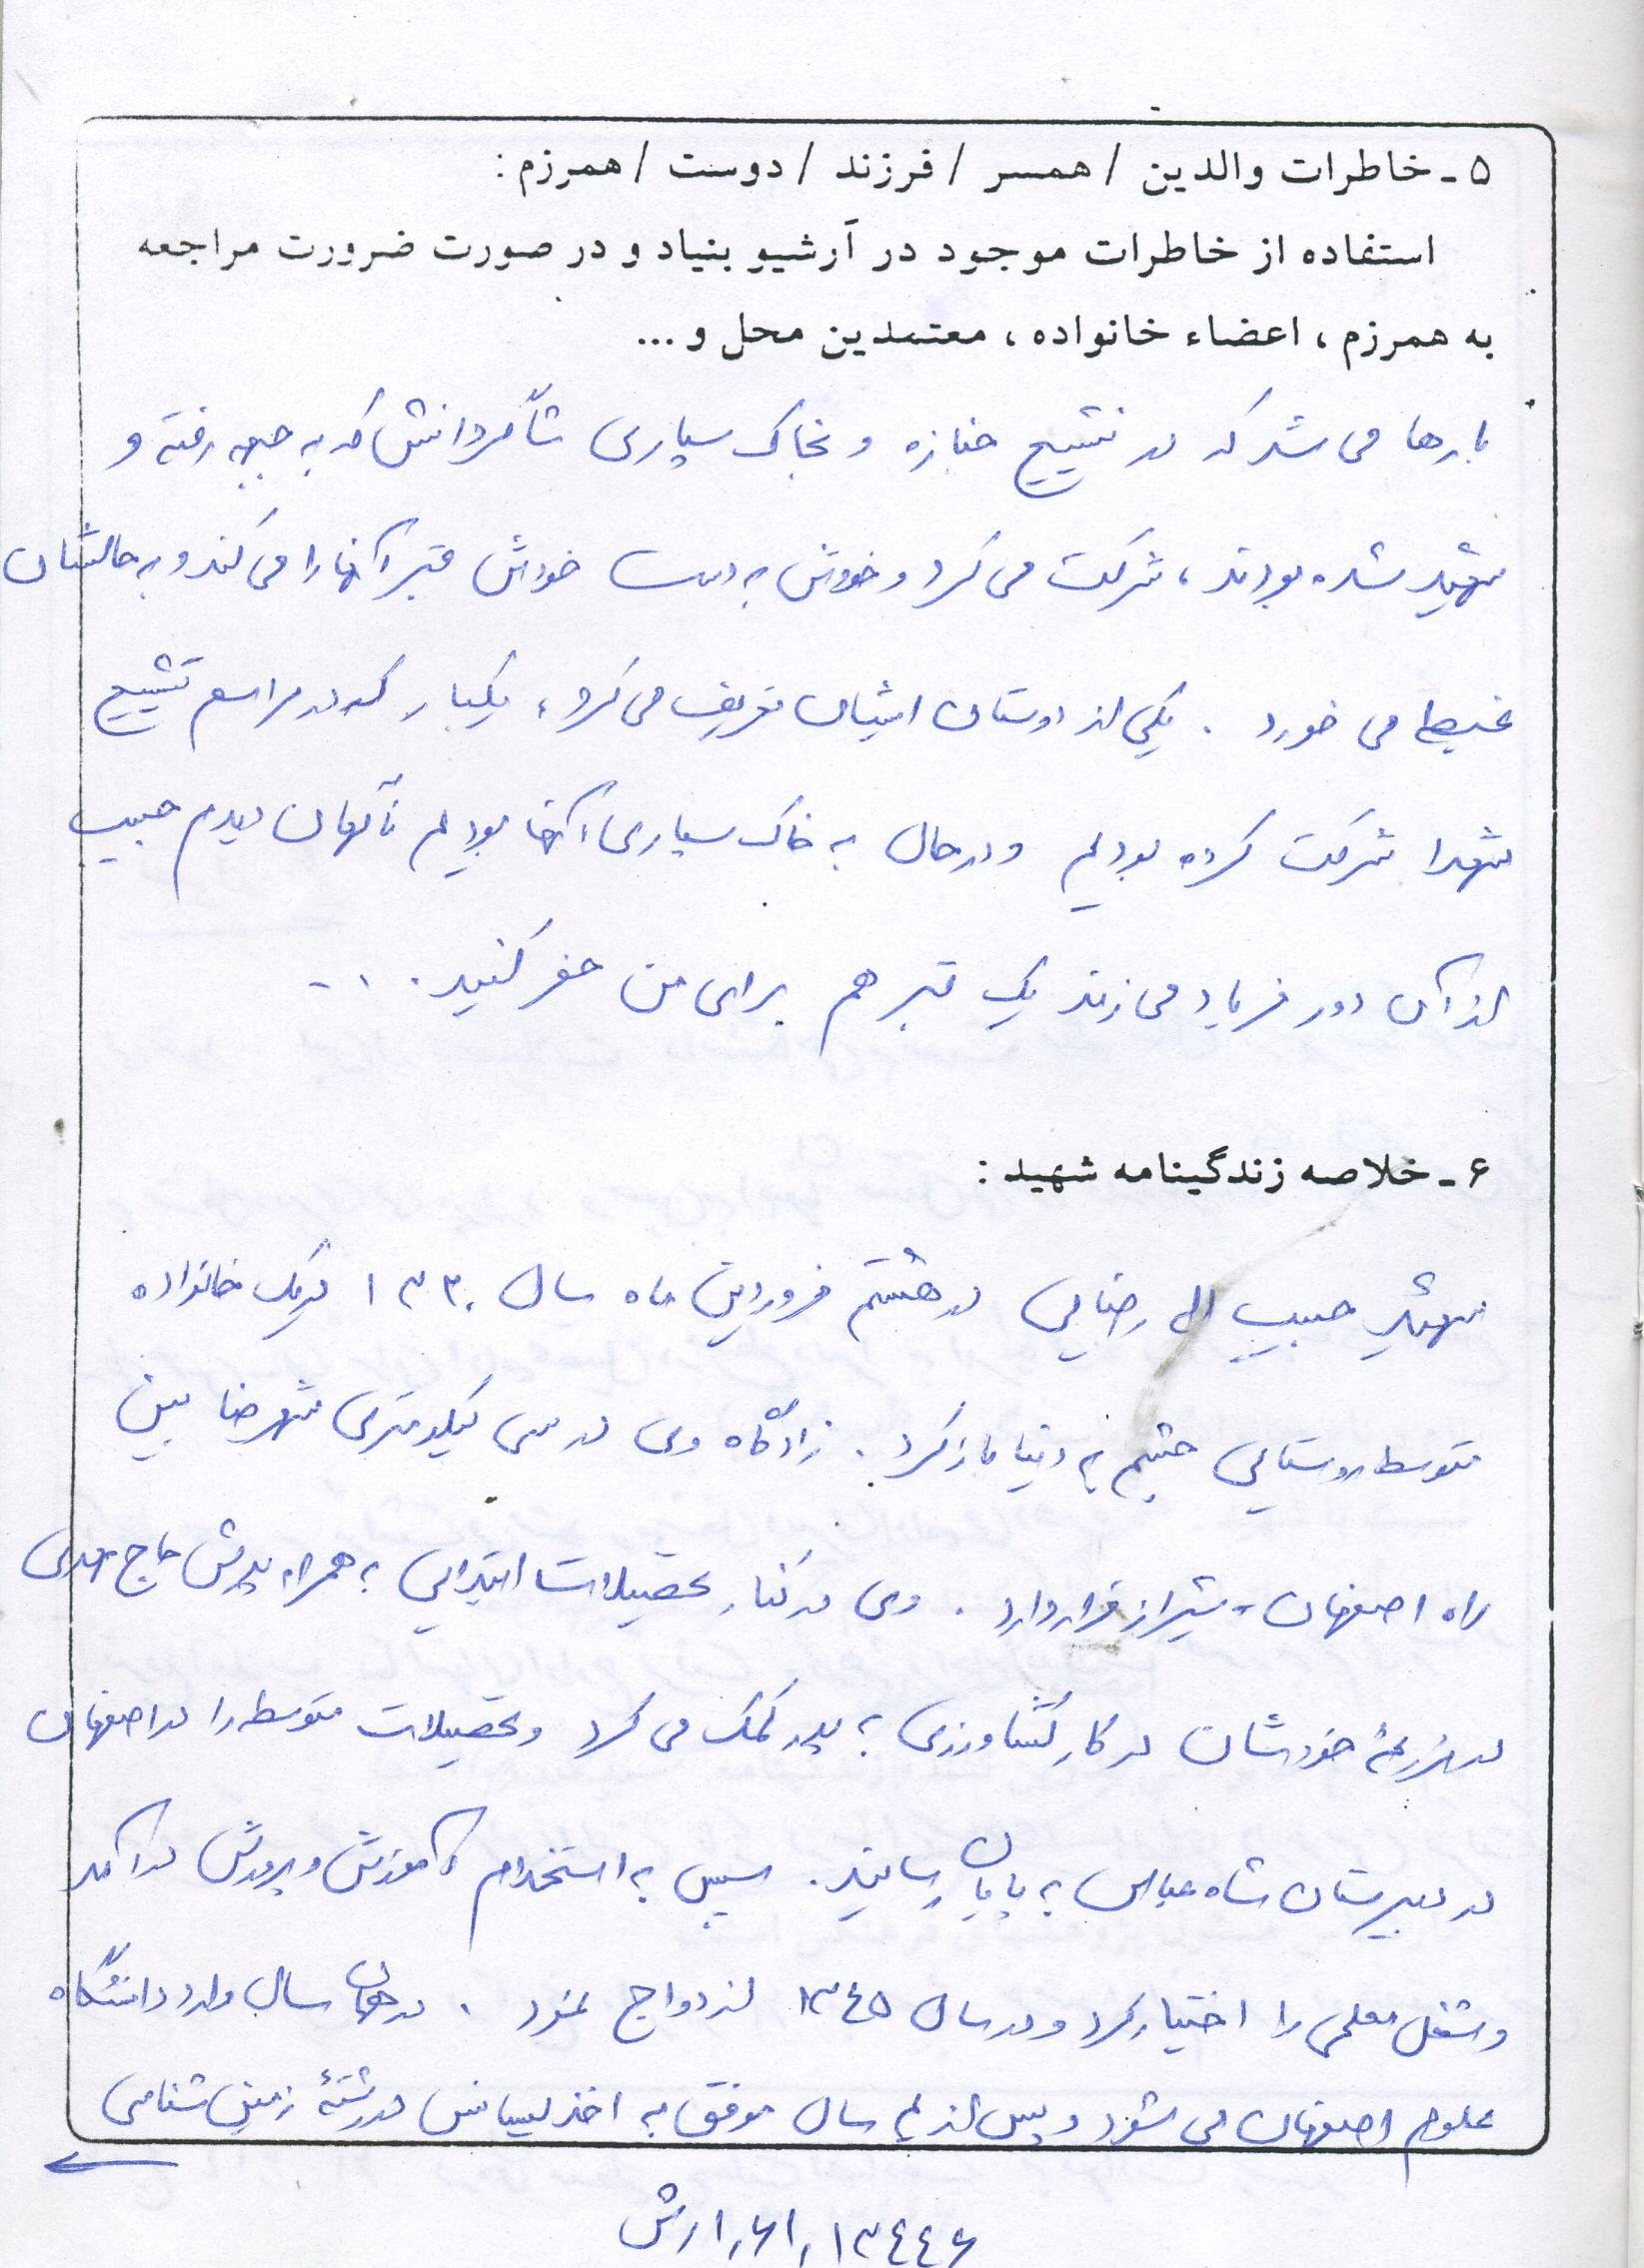 ۵ - خاطرات والدین / همسر / فرزند / دوست / همرزم :
استفاده از خاطرات موجود در آرشیو بنیاد و در صورت ضرورت مراجعه
به همرزم ، اعضاء خانواده ، معتمدین محل و ...
بارها می شد که در تشییع جنازه و بخاک سپاری شاگردانش که به جبهه رفته و
شهید شده بودند ، شرکت می کرد و خودش به دست خودش قبر آنها را می کند و به حالشان
غبطه می خورد . یکی از دوستان ایشان تعریف می کرد ، یکبار که در مراسم تشییع
شهدا شرکت کرده بودیم و در حال به خاک سپاری آنها بودیم ناگهان دیدم حبیب
از آن دور فریاد می زند یک قبر هم برای من حفر کنید . . .
۶ - خلاصه زندگینامه شهید :
شهید حبیب اله رضایی در هشتم فروردین ماه سال ۱۳۳۰ در یک خانواده
متوسط روستایی چشم به دنیا باز کرد . زادگاه وی در سی کیلومتری شهرضا بین
راه اصفهان - شیراز قرار دارد . وی در کنار تحصیلات ابتدایی به همراه پدرش حاج مهدی
در مزرعهٔ خودشان در کار کشاورزی به پدر کمک می کرد و تحصیلات متوسطه را در اصفهان
در دبیرستان شاه عباس به پایان رسانید . سپس به استخدام آموزش و پرورش در آمد
و شغل معلمی را اختیار کرد و در سال ۱۳۴۵ ازدواج نمود . در همان سال وارد دانشگاه
علوم اصفهان می شود و پس از ۴ سال موفق به اخذ لیسانس در رشتهٔ زمین شناسی